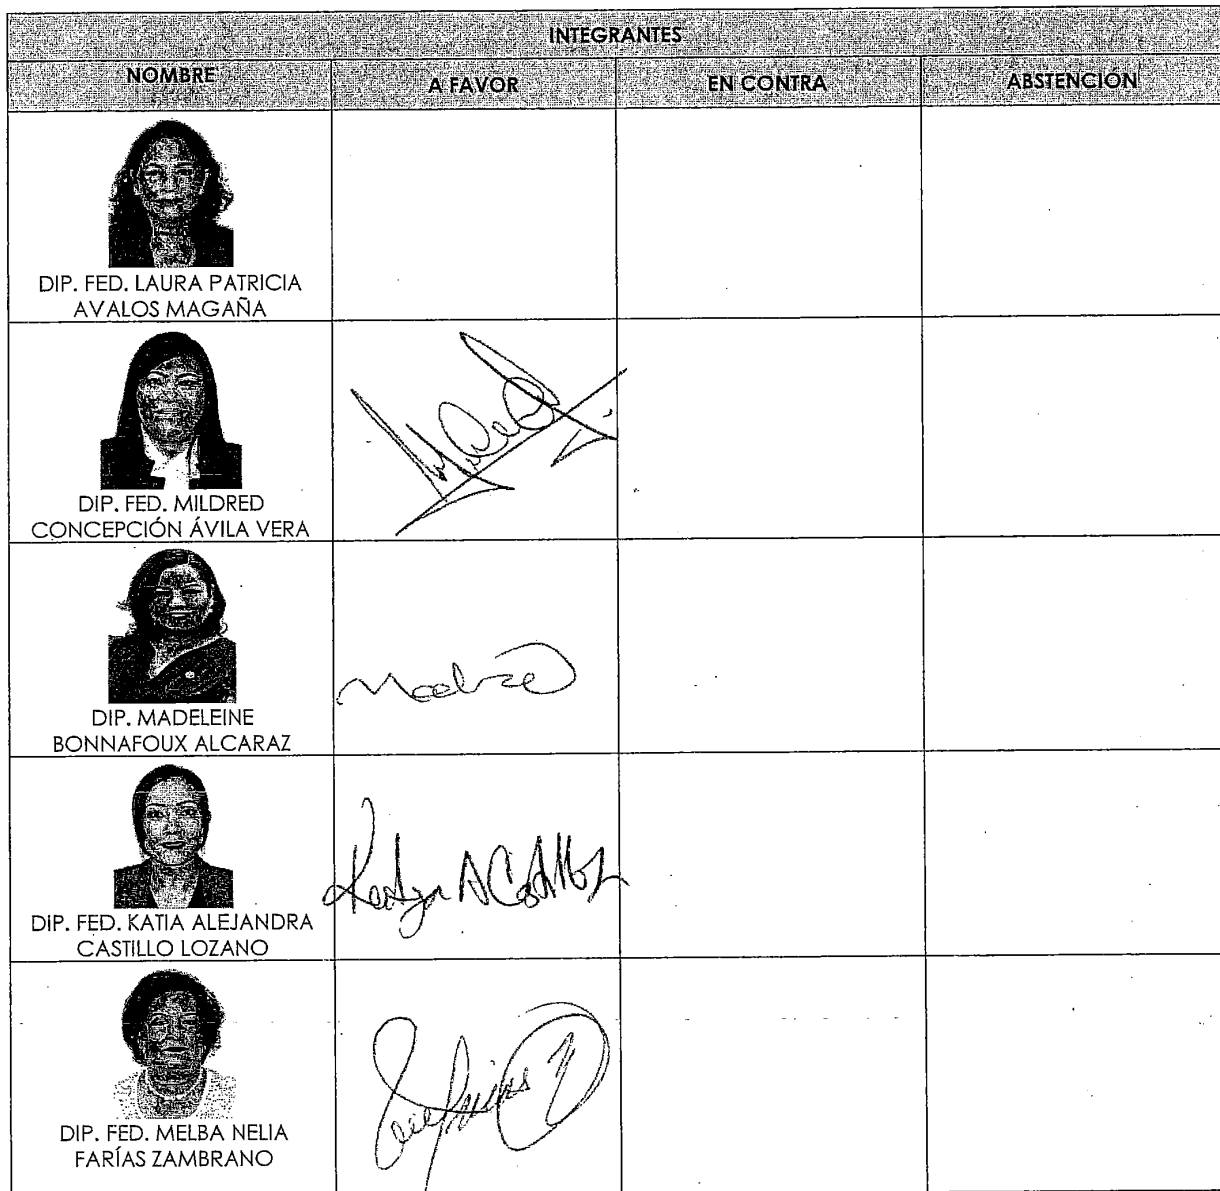 INTEGRANTES
NOMBRE A FAVOR EN CONTRA ABSTENCIÓN
DIP. FED. LAURA PATRICIA
AVALOS MAGAÑA
DIP. FED. MILDRED
CONCEPCIÓN ÁVILA VERA
DIP. MADELEINE
BONNAFOUX ALCARAZ
DIP. FED. KATIA ALEJANDRA
CASTILLO LOZANO
DIP. FED. MELBA NELIA
FARÍAS ZAMBRANO